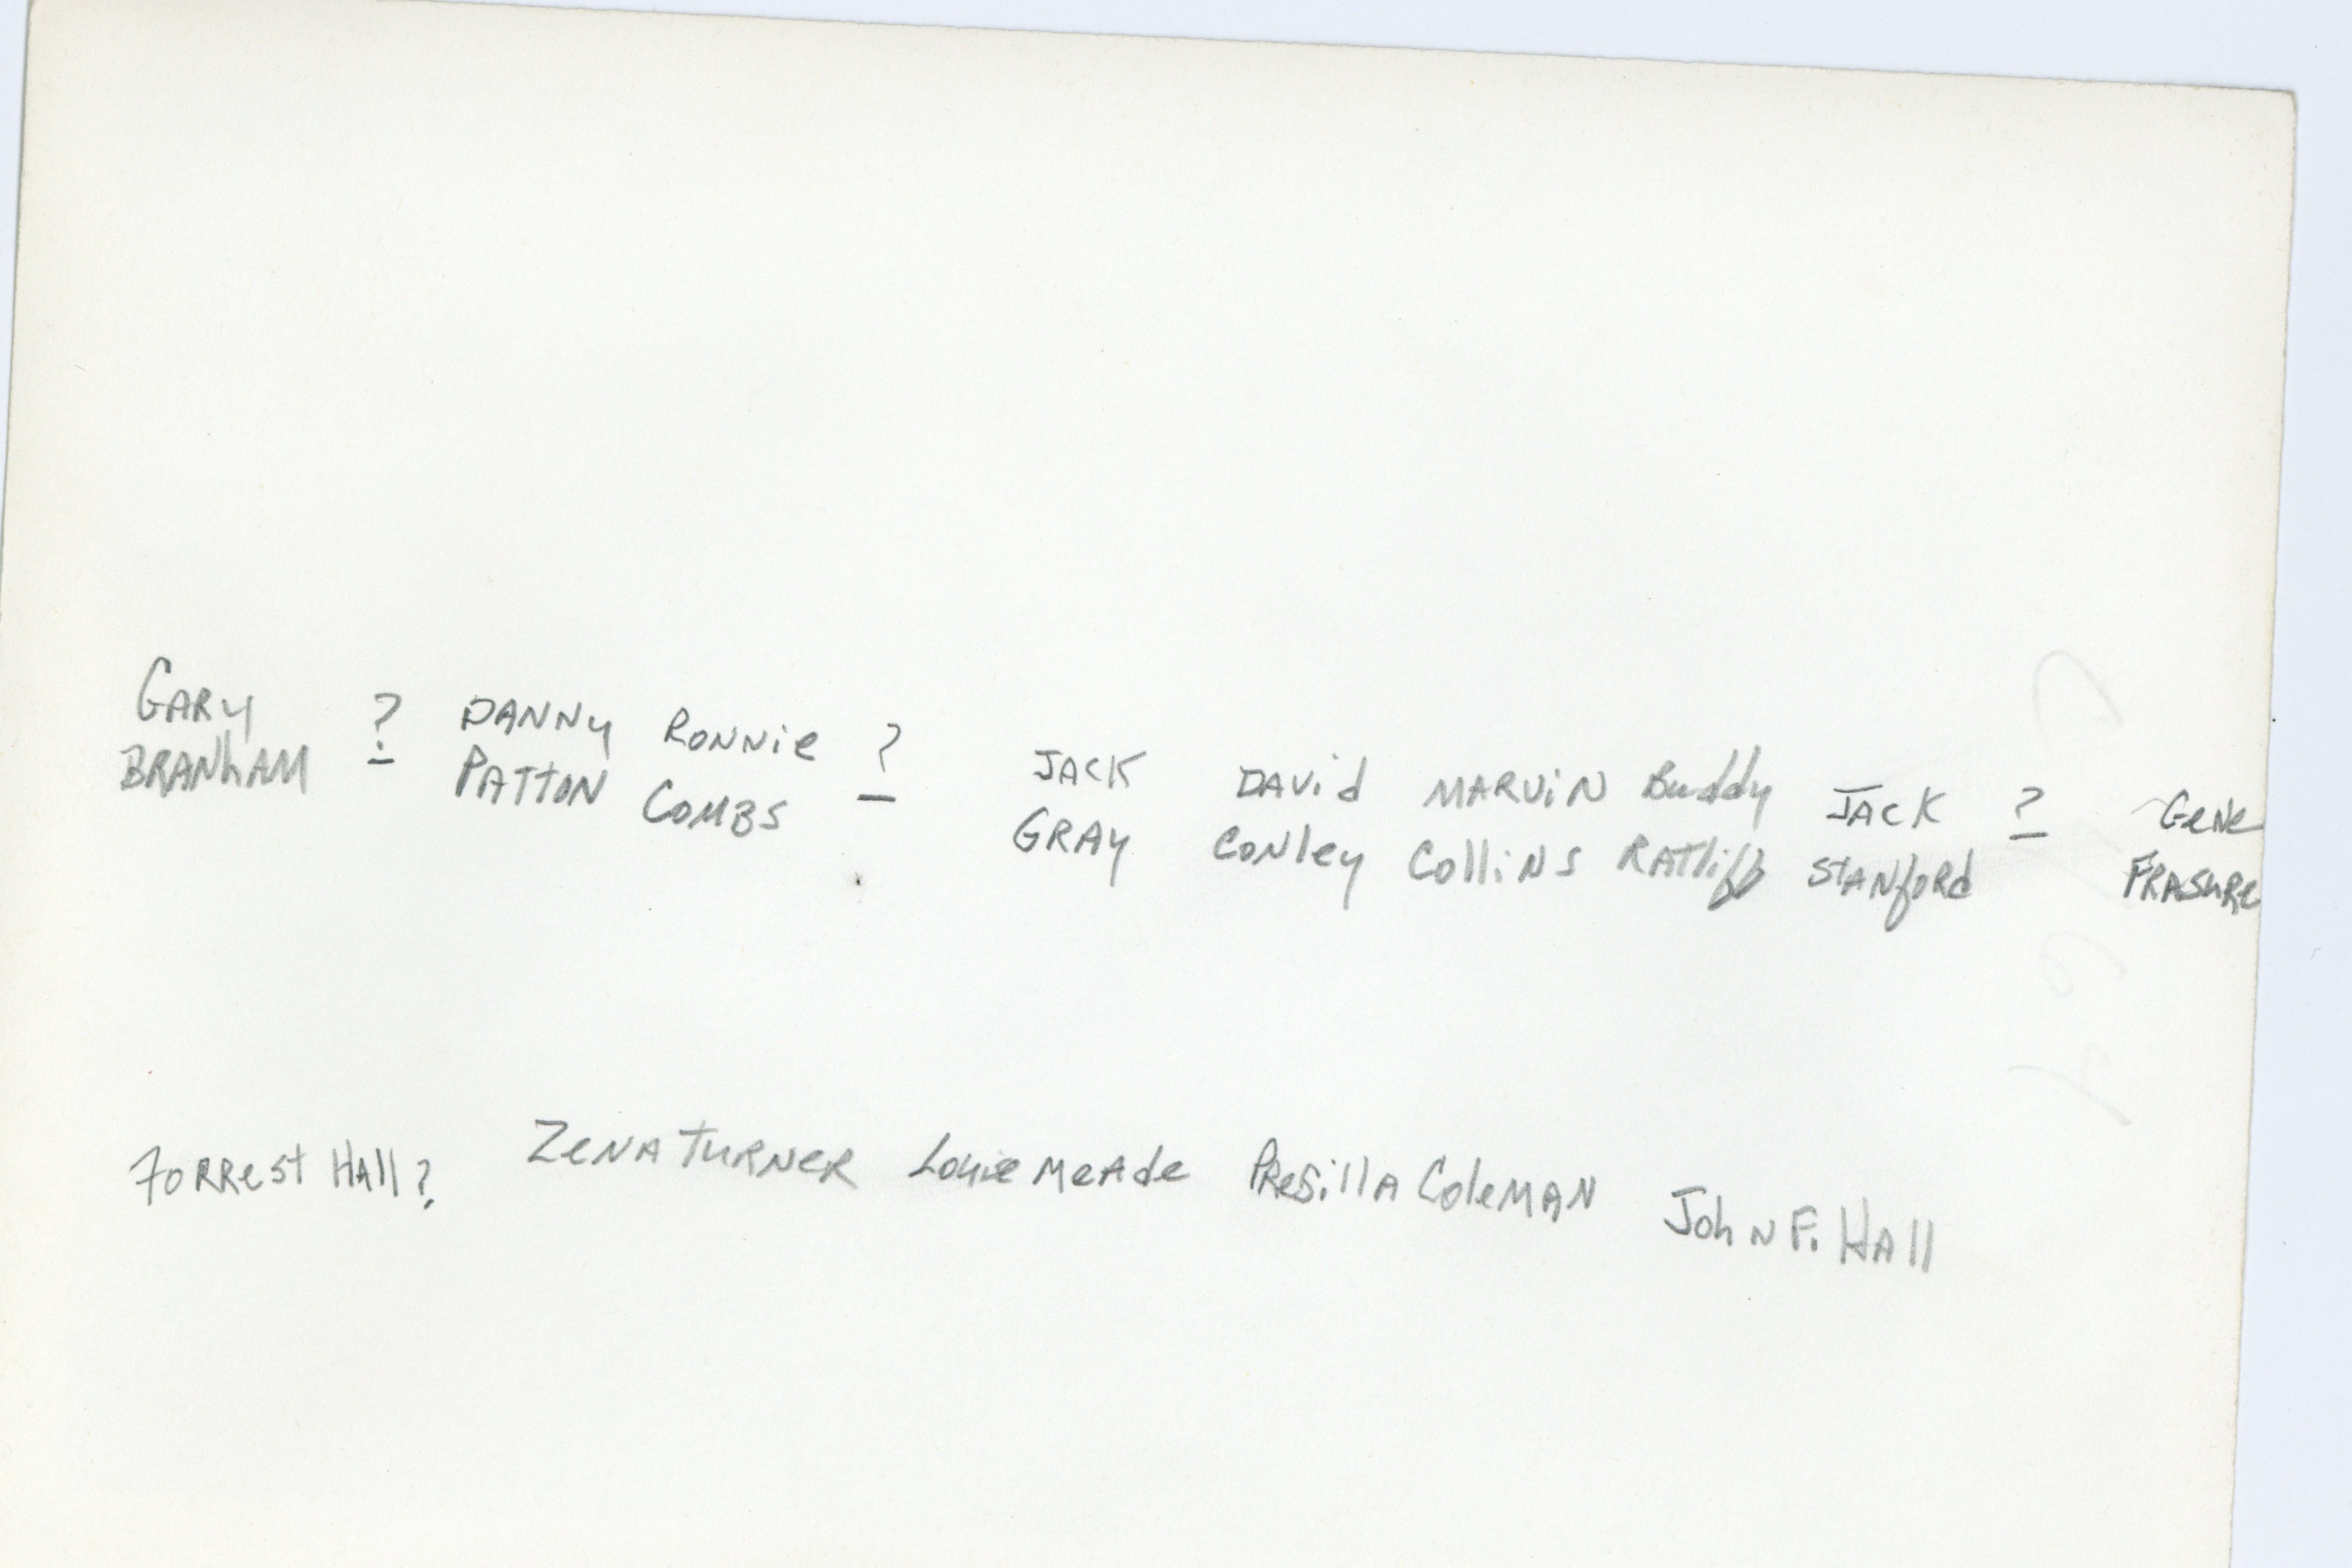 GARY ? DANNY RONNie ? JACK DAVid MARViN Buddy JACK ? GeNe
BRANhAM PATTON COMBS GRAY CONley ColliNS RATliff STANfORd FRASuRe
FORReST HAll? ZeNA TuRNeR Louie MeAde PReSillA ColeMAN JohN F. HAll